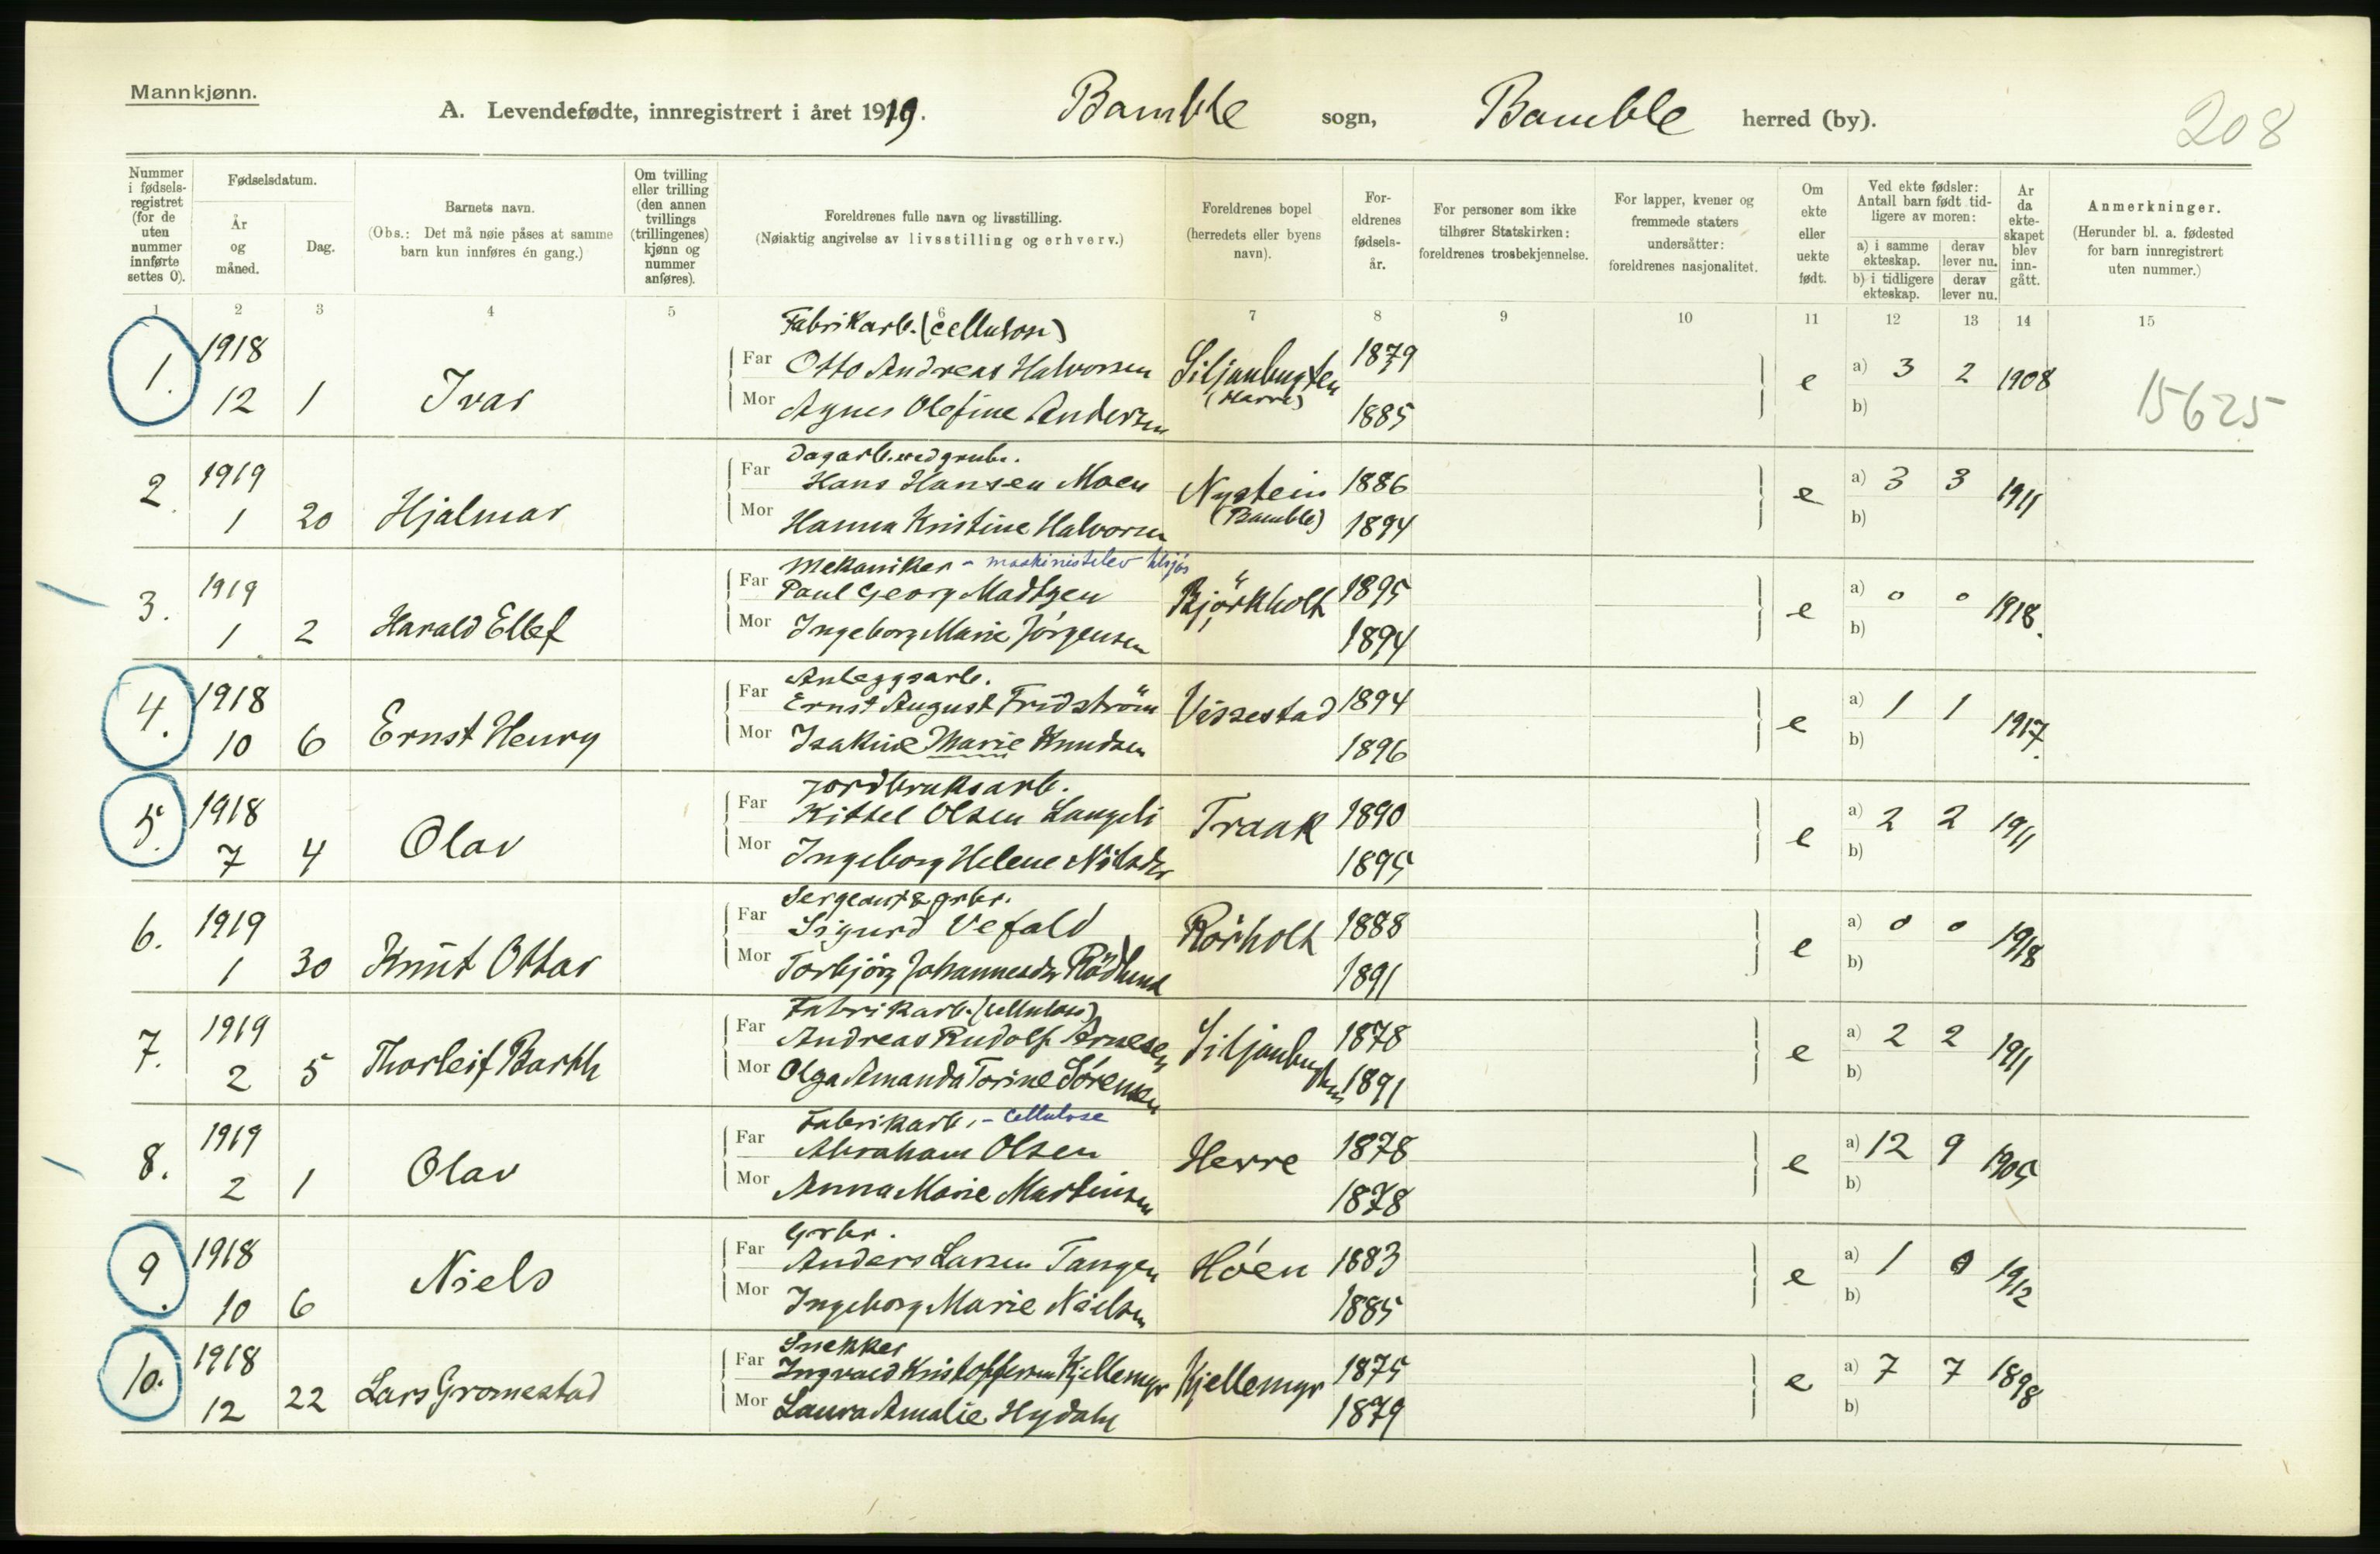 Mannkjønn.
A. Levendefødte, innregistrert i året 1919. Bamble sogn, Bamble herred (by). 208
Nummer i fødsels-registret (for de uten nummer innførte settes 0).
Fødselsdatum.
År og måned.
Dag.
Barnets navn.
(Obs.: Det må nøie påses at samme barn kun innføres én gang.)
Om tvilling eller trilling (den annen tvillings (trillingenes) kjønn og nummer anføres).
Foreldrenes fulle navn og livsstilling.
(Nøiaktig angivelse av livsstilling og erhverv.)
Foreldrenes bopel (herredets eller byens navn).
For-eldrenes fødsels-år.
For personer som ikke tilhører Statskirken: foreldrenes trosbekjennelse.
For lapper, kvener og fremmede staters undersåtter: foreldrenes nasjonalitet.
Om ekte eller uekte født.
Ved ekte fødsler: Antall barn født tid-ligere av moren:
a) i samme ekteskap. derav lever nu.
b) i tidligere ekteskap. derav lever nu.
Ar da ekte-skapet blev inn-gått.
Anmerkninger.
(Herunder bl. a. fødested for barn innregistrert uten nummer.)
1 2 3 4 5 6 7 8 9 10 11 12 13 14 15
Fabrikarb. (cellulose)
1. 1918 Far Otto Andreas Halvorsen Siljanbugten 1879 e a) 3 2 1908 15625
12 1 Ivar Mor Agnes Olefine Andersen (Herre) 1885 b)
Dagarb. ved grube.
2. 1919 Far Hans Hansen Moen Nystein 1886 e a) 3 3 1911
1 20 Hjalmar Mor Hanna Kristine Halvorsen (Bamble) 1894 b)
Mekaniker - maskinistelev tilsjøs "
3. 1919 Far Paul Georg Madtzen Björkholt 1895 e a) 0 0 1918.
1 2 Harald Ellef Mor Ingeborg Marie Jörgensen 1894 b)
Anleggsarb.
4. 1918 Far Ernst August Fridström Vissestad 1894 e a) 1 1 1917.
10 6 Ernst Henry Mor Isakine Marie Knudsen 1896 b)
Jordbruksarb.
5. 1918 Far Kittel Olsen Langeli Traak 1890 e a) 2 2 1911
7 4 Olav Mor Ingeborg Helene Nilsdtr 1895 b)
Sergeant & grbr.
6. 1919 Far Sigurd Vefald Rörholt 1888 e a) 0 0 1918
1 30 Knut Ottar Mor Torbjörg Johannesdtr 1891 b)
Fabrikarb. (cellulose)
7. 1919 Far Andreas Rudolf Arnesen Siljanbugten 1878 e a) 2 2 1911
2 5 Thorleif Barth Mor Olga Amanda Torine Sörensen 1891 b)
Fabrikarb. - Cellulose
8. 1919 Far Abraham Olsen Herre 1878 e a) 12 9 1905
2 1 Olav Mor Anna Marie Martinsen 1878 b)
Grbr.
9. 1918 Far Anders Larsen Tangen Hóen 1883 e a) 1 0 1912
10 6 Niels Mor Ingeborg Marie Nielsen 1885 b)
Snekker
10. 1918 Far Ingvald Kristoffersen Kjellemyr Kjellemyr 1875 e a) 7 7 1898
12 22 Lars Gromestad Mor Laura Amalie Hydahl 1879 b)